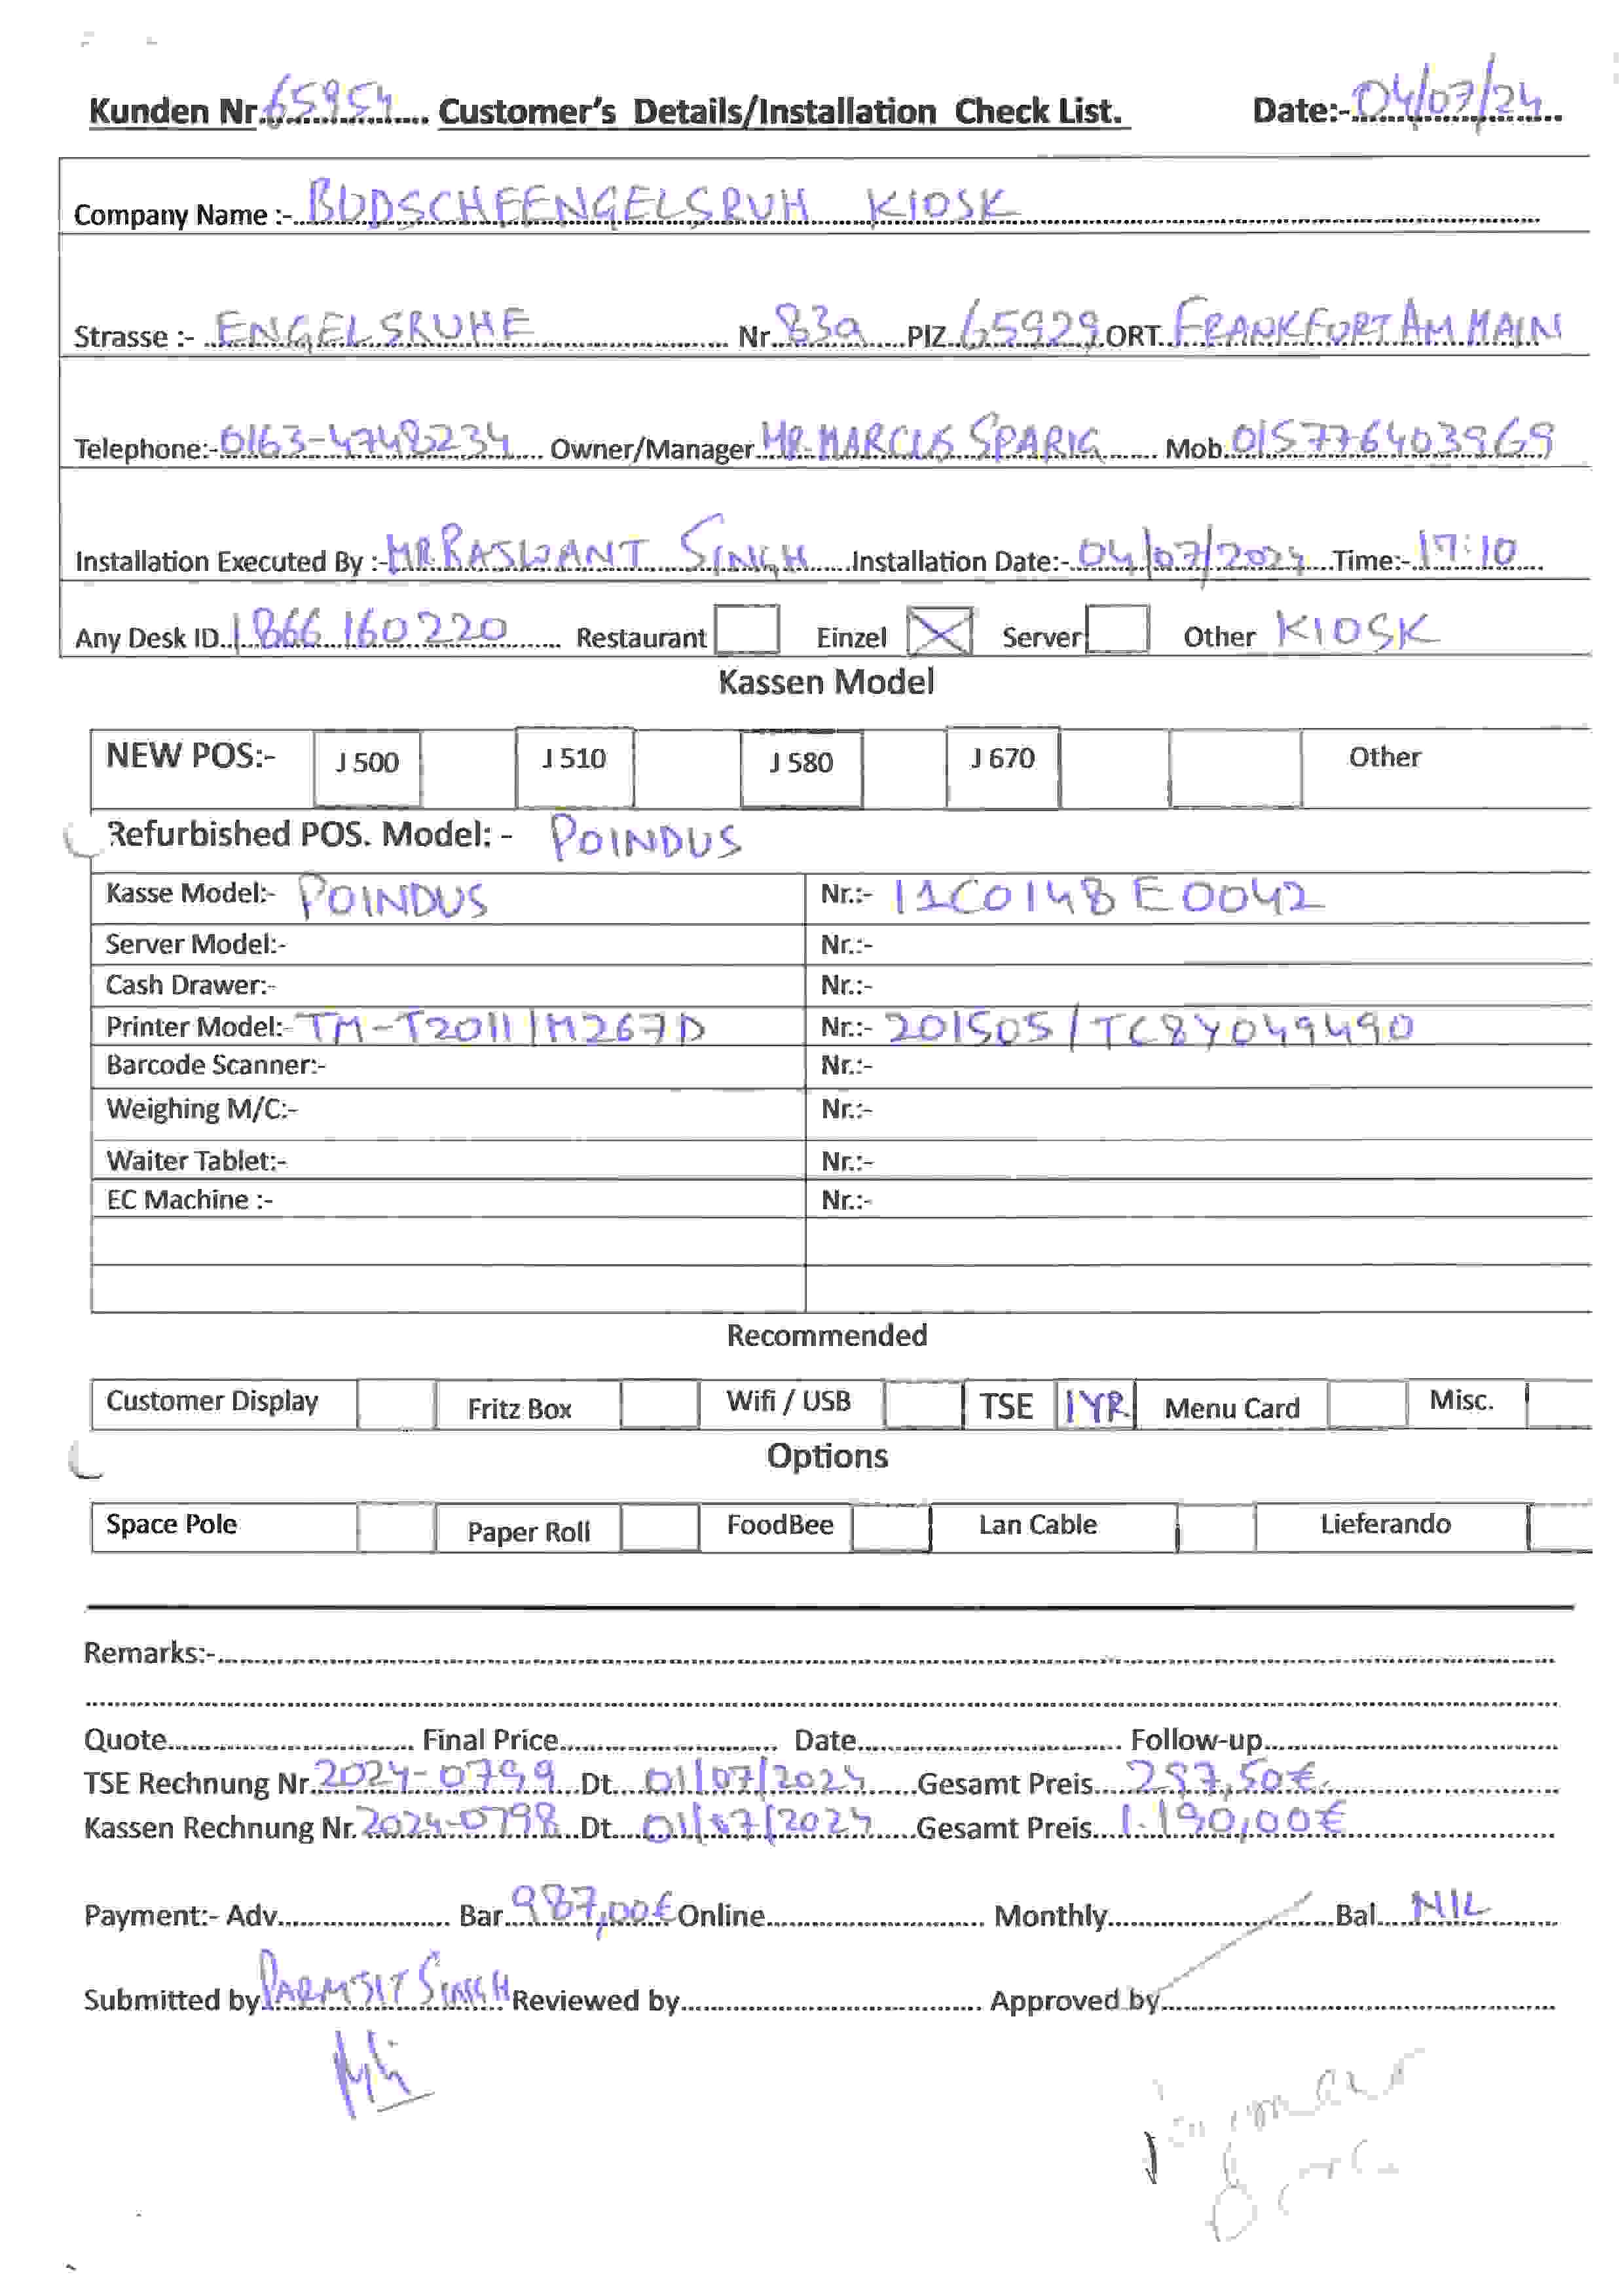 Kunden Nr. 65954 Customer's Details/Installation Check List. Date:- 04/07/24
Company Name :- BUDSCHEENGELSRUH KIOSK
Strasse :- ENGELSRUHE Nr. 83a PlZ. 65929 ORT. FRANKFORT AM MAIN
Telephone:- 0163-4748234 Owner/Manager MR. MARCUS SPARIG Mob. 015776403969
Installation Executed By :- MR. RASWANT SINGH Installation Date:- 04/07/2024 Time:- 17:10
Any Desk ID. 1866 160 220 Restaurant Einzel Server Other KIOSK
Kassen Model
NEW POS:- J 500 J 510 J 580 J 670 Other
Refurbished POS. Model: - POINDUS
Kasse Model:- POINDUS Nr.:- 11C0148E0042
Server Model:- Nr.:-
Cash Drawer:- Nr.:-
Printer Model:- TM-T2011/M267D Nr.:- 201505/TC8Y049490
Barcode Scanner:- Nr.:-
Weighing M/C:- Nr.:-
Waiter Tablet:- Nr.:-
EC Machine :- Nr.:-
Recommended
Customer Display Fritz Box Wifi / USB TSE 1YR Menu Card Misc.
Options
Space Pole Paper Roll FoodBee Lan Cable Lieferando
Remarks:-
Quote Final Price Date Follow-up
TSE Rechnung Nr. 2024-0799 Dt. 01/07/2024 Gesamt Preis 297,50€
Kassen Rechnung Nr. 2024-0798 Dt. 01/07/2024 Gesamt Preis 1.190,00€
Payment:- Adv. Bar 987,00€ Online Monthly Bal. NIL
Submitted by PARMJIT SINGH Reviewed by Approved by